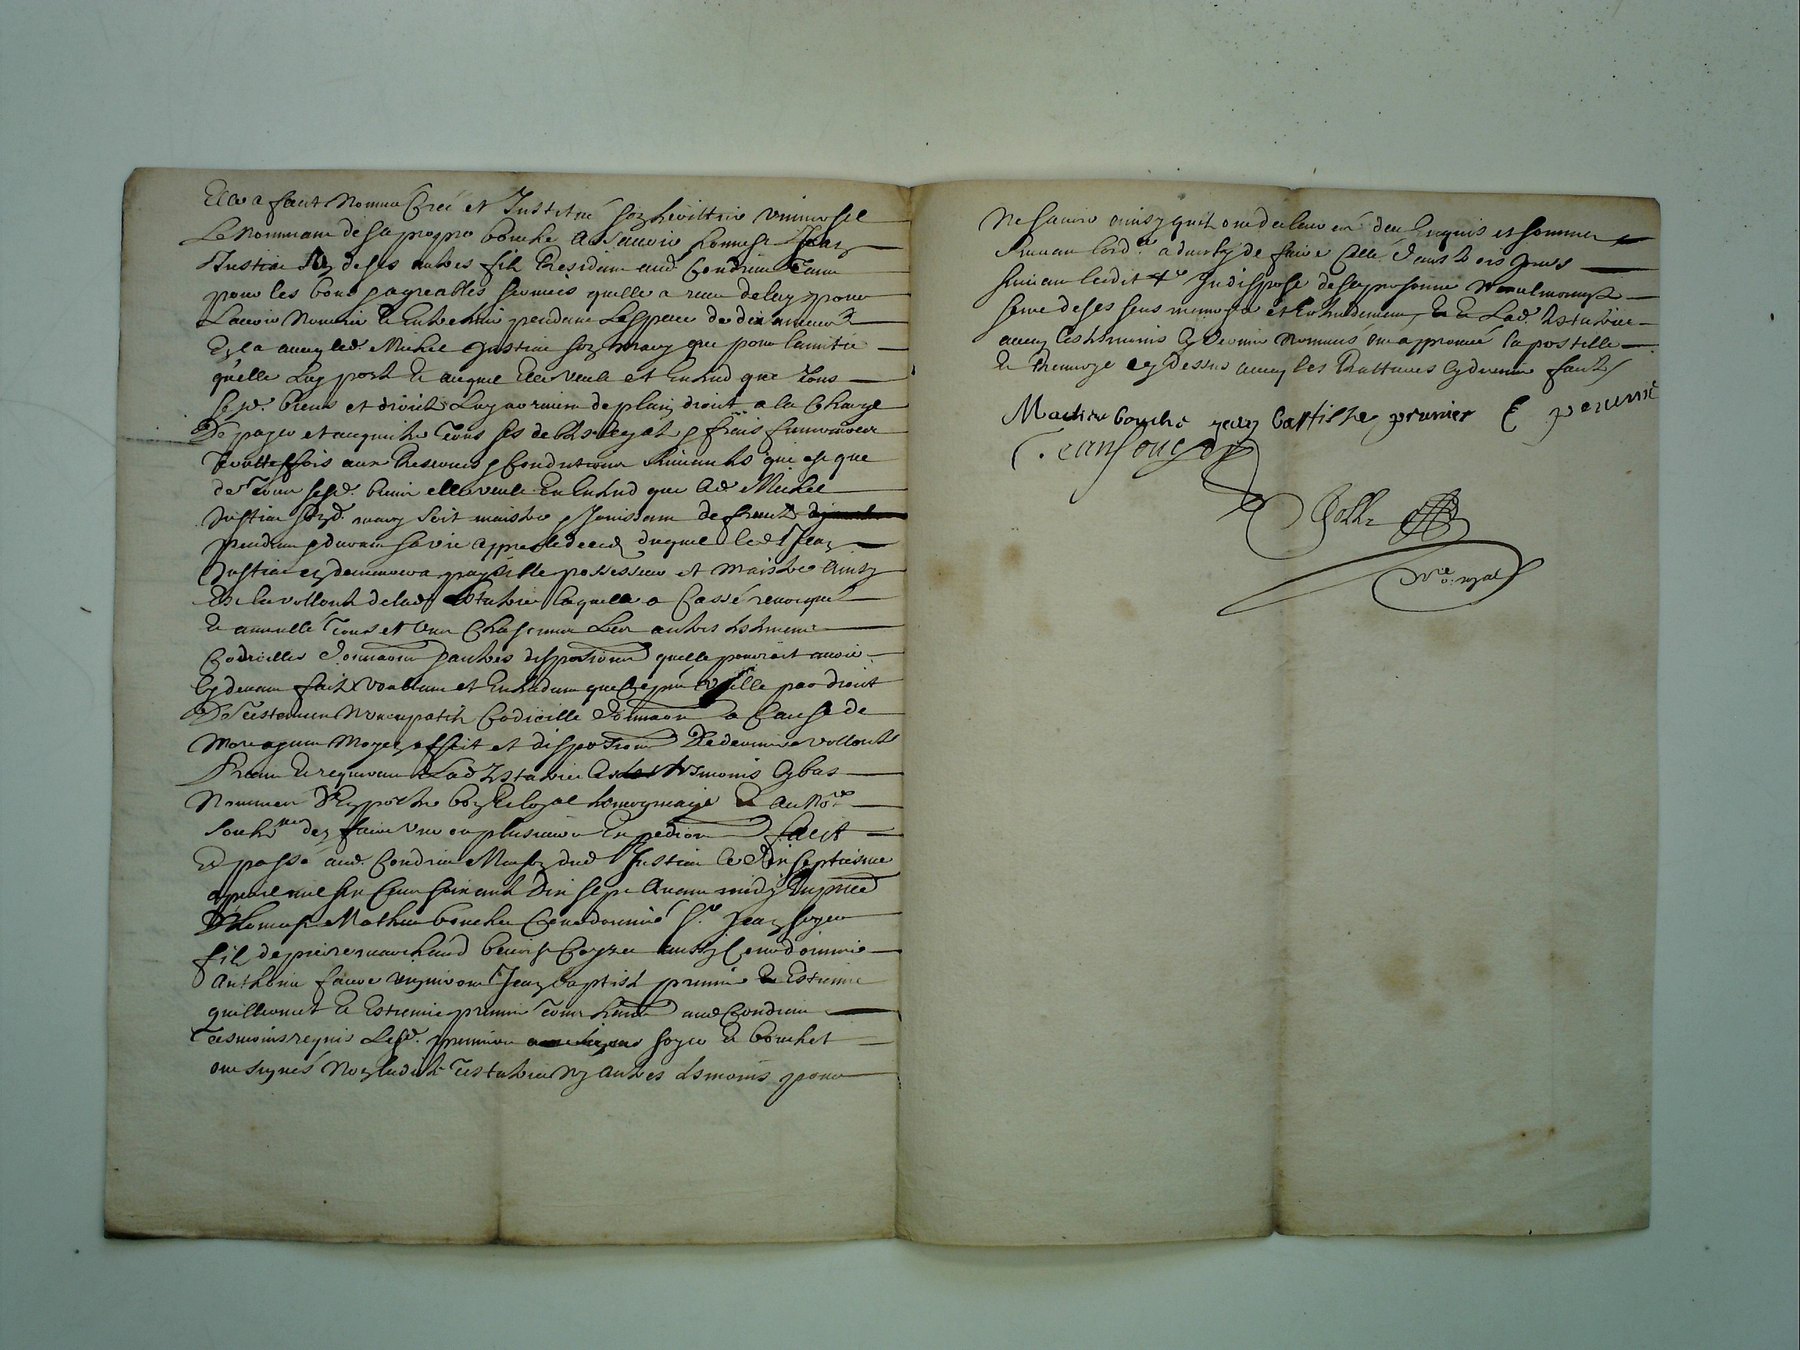 Elle a faict nommé Créé et Institué son heritier universel
Le nommant de sa propre bouche a scavoir honneste Jean
Justian de ses aultres fils Residant aud. Condrieu Tant
pour les bons & agreables services quelle a receu de luy pour
Lavoir nourrie & Entretenue pendant Lespace de dix années
avecq led. Michel Justian son mary que pour lamitié
quelle luy porte & auquel Elle veult et Entend que Tous
sesd. biens et droits Luy advienne de plain droict a la Charge
De payer et acquitter Tous ses debtes legats & frais funeraires
Touttesfois aux Reserves & Conditions suivantes que est que
de Tous sesd. biens elle veult & Entend que led. Michel
Justian sond. mary soit maistre & Jouissant de fruits
pendant & durant sa vie appres le deced duquel led. Jean
Justian en demeurera paysible possesseur et maistre Ainsy
Est la vollonté de lad. testatrice laquelle a Cassé revocqué
& annullé Tous et Ung Chascungs Les aultres testemens
Codicilles donnaons & aultres dispositions quelle pourroit avoir
Cydevant faict voullant et Entendant que Ce pnt vaille par droict
De Testament Noncupatif Codicille donnaon a Cause de
Mort & autre Moyen effect et disposition De derniere vollonté
Priant & requerant Lad testatrice les tesmoins Cybas
Nommés D'En porter bon & loyal tesmoignage & au Nore
soubzne den faire une ou plusieurs Expedions faict
Et passé aud. Condrieu Maison dud Justian le dix septiesme
apvril mil six Cens soixante Dix sept Avant midy En pnce
D'honneste Mathieu bouchet Cordonnier Sr. Jean soyer
fils de pierre marchand benoist aussy Cordonnier
Anthoine faure vigneron Jean baptiste prunier & Estienne
guillermet & Estienne prunier Tous habitans aud Condrieu
Tesmoins requis Lesd. prunier soyer & bouchet
ont signés Non ladicte Testatrice Ny aultres tesmoins pour
Ne scavoir ainsy quil ont declairé de ce Enquis et sommés
suivant lord.ce
Indisposé de sa personne Neantmoingts
saine de ses sens memoire et Entendement, & Lad. testatrice
avecq les tesmoins Cy devant Nommés ont approuvé la postille
& Renvoye cy dessus avecq les Rattures Cydevant faicts
Mathieu bouche jean baptiste prunier E prunié
Jean soyer
Nre. royal